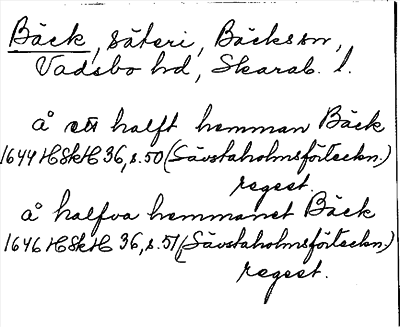 Bäck, säteri, Bäcks sn,
Vadsbo hd, Skarab. l.
å ett halft hemman Bäck
1644 HSkH 36, s. 50 (Sävstaholmsförteckn.)
regest.
å halfva hemmanet Bäck
1646 HSkH 36, s. 51 (Sävstaholmsförteckn.)
regest.